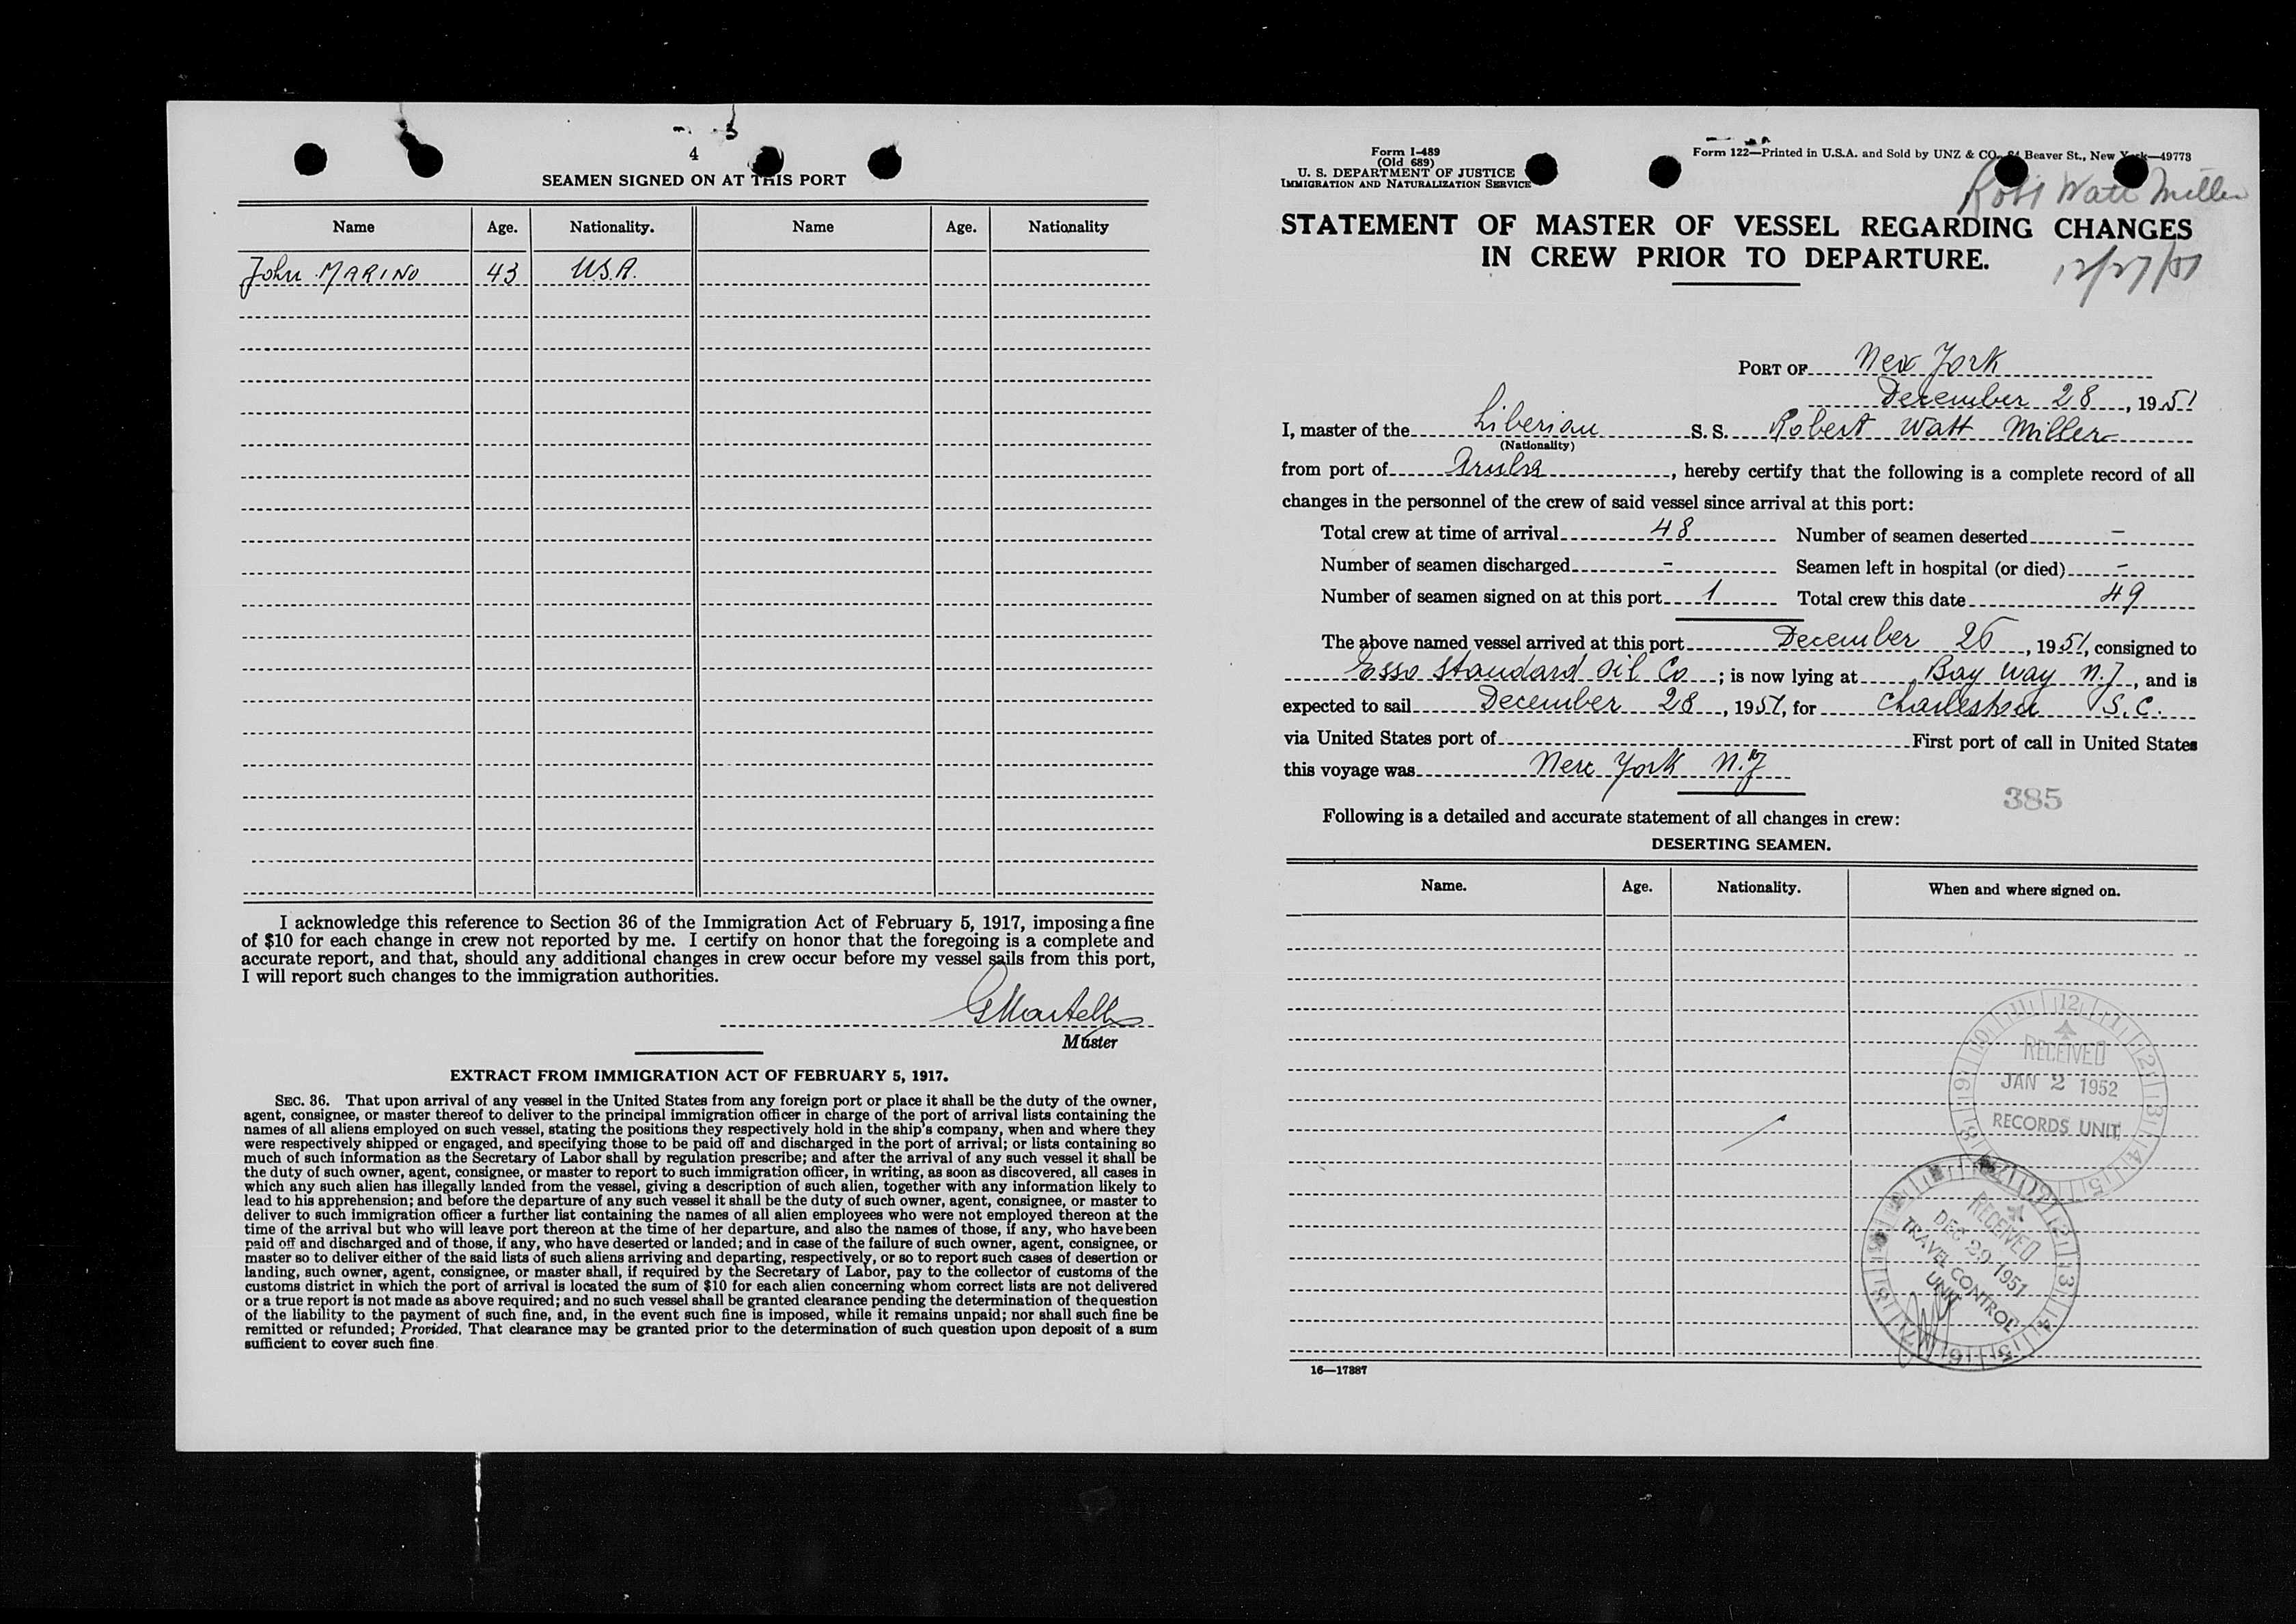 4
SEAMEN SIGNED ON AT THIS PORT
Name Age. Nationality. Name Age. Nationality
John MARINO 43 U.S.A.
I acknowledge this reference to Section 36 of the Immigration Act of February 5, 1917, imposing a fine
of $10 for each change in crew not reported by me. I certify on honor that the foregoing is a complete and
accurate report, and that, should any additional changes in crew occur before my vessel sails from this port,
I will report such changes to the immigration authorities.
Master
EXTRACT FROM IMMIGRATION ACT OF FEBRUARY 5, 1917.
SEC. 36. That upon arrival of any vessel in the United States from any foreign port or place it shall be the duty of the owner,
agent, consignee, or master thereof to deliver to the principal immigration officer in charge of the port of arrival lists containing the
names of all aliens employed on such vessel, stating the positions they respectively hold in the ship's company, when and where they
were respectively shipped or engaged, and specifying those to be paid off and discharged in the port of arrival; or lists containing so
much of such information as the Secretary of Labor shall by regulation prescribe; and after the arrival of any such vessel it shall be
the duty of such owner, agent, consignee, or master to report to such immigration officer, in writing, as soon as discovered, all cases in
which any such alien has illegally landed from the vessel, giving a description of such alien, together with any information likely to
lead to his apprehension; and before the departure of any such vessel it shall be the duty of such owner, agent, consignee, or master to
deliver to such immigration officer a further list containing the names of all alien employees who were not employed thereon at the
time of the arrival but who will leave port thereon at the time of her departure, and also the names of those, if any, who have been
paid off and discharged and of those, if any, who have deserted or landed; and in case of the failure of such owner, agent, consignee, or
master so to deliver either of the said lists of such aliens arriving and departing, respectively, or so to report such cases of desertion or
landing, such owner, agent, consignee, or master shall, if required by the Secretary of Labor, pay to the collector of customs of the
customs district in which the port of arrival is located the sum of $10 for each alien concerning whom correct lists are not delivered
or a true report is not made as above required; and no such vessel shall be granted clearance pending the determination of the question
of the liability to the payment of such fine, and, in the event such fine is imposed, while it remains unpaid; nor shall such fine be
remitted or refunded; Provided, That clearance may be granted prior to the determination of such question upon deposit of a sum
sufficient to cover such fine.
Form I-489
(Old 689)
U. S. DEPARTMENT OF JUSTICE
IMMIGRATION AND NATURALIZATION SERVICE
Form 122—Printed in U.S.A. and Sold by UNZ & CO., 24 Beaver St., New York—49773
Robt Watt Miller
STATEMENT OF MASTER OF VESSEL REGARDING CHANGES
IN CREW PRIOR TO DEPARTURE.
12/27/51
PORT OF New York
December 28, 1951
I, master of the Liberian S. S. Robert Watt Miller
(Nationality)
from port of Aruba, hereby certify that the following is a complete record of all
changes in the personnel of the crew of said vessel since arrival at this port:
Total crew at time of arrival 48 Number of seamen deserted -
Number of seamen discharged - Seamen left in hospital (or died) -
Number of seamen signed on at this port 1 Total crew this date 49
The above named vessel arrived at this port December 26, 1951, consigned to
Esso Standard Oil Co; is now lying at Bay way N.J, and is
expected to sail December 28, 1951, for Charleston S.C.
via United States port of First port of call in United States
this voyage was New York N.Y
385
Following is a detailed and accurate statement of all changes in crew:
DESERTING SEAMEN.
Name. Age. Nationality. When and where signed on.
RECEIVED
JAN 2 1952
RECORDS UNIT
RECEIVED
DEC 29 1951
TRAVEL CONTROL
UNIT
16—17887